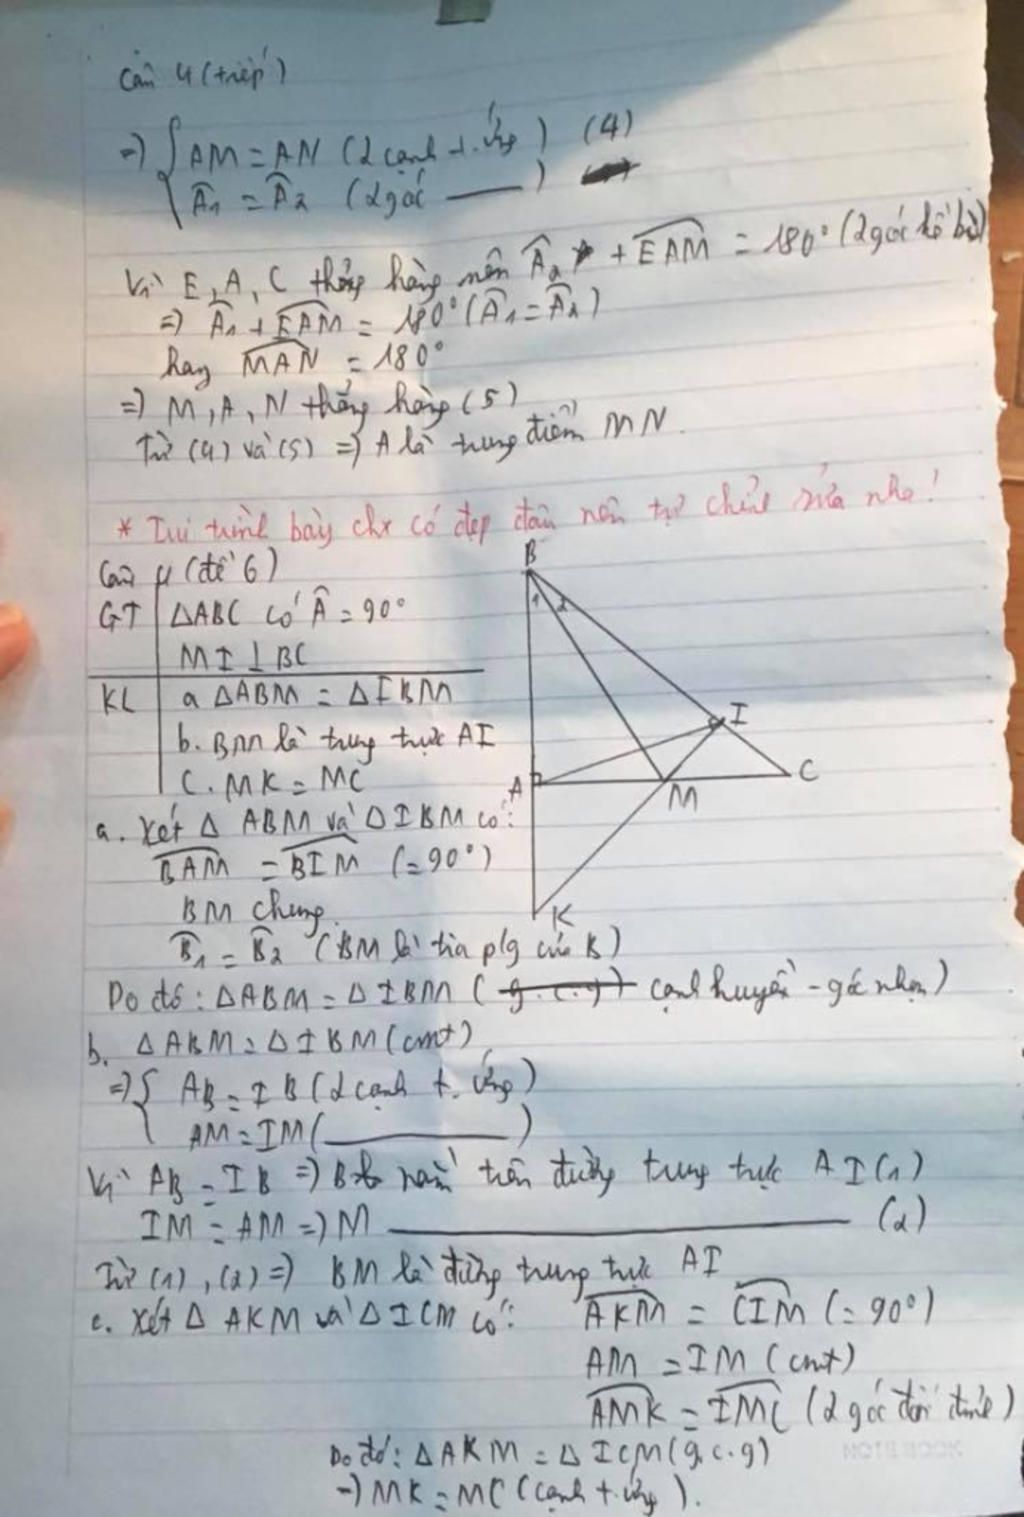 Câu 4 (tiếp)
=) { AM = AN (2 cạnh t. ứng) (4)
Â1 = Â2 (2 góc ——)
Vì E, A, C thẳng hàng nên Â2 + EAM = 180° (2 góc kề bù)
=) Â1 + EAM = 180° (Â1 = Â2)
hay MAN = 180°
=) M, A, N thẳng hàng (5)
Từ (4) và (5) =) A là trung điểm MN.
* Tui trình bày chx có đẹp đâu nên tự chỉnh sửa nha!
Câu 4 (đề 6)
GT ΔABC có Â = 90°
MI ⊥ BC
KL a ΔABM = ΔIBM
b. BM là trung trực AI
C. MK = MC
B
1 2
I
A
M
C
K
a. Xét Δ ABM và Δ IBM có:
BAM = BIM (= 90°)
BM chung
B1 = B2 (BM là tia p/g của B)
Do đó: ΔABM = Δ IBM (g.c.g) cạnh huyền - góc nhọn)
b. ΔABM = Δ IBM (cmt)
=) { AB = IB (2 cạnh t. ứng)
AM = IM (——)
Vì AB = IB =) B nằm trên đường trung trực AI (1)
IM = AM =) M —— (2)
Từ (1), (2) =) BM là đường trung trực AI
c. Xét Δ AKM và Δ ICM có: AKM = CIM (= 90°)
AM = IM (cmt)
AMK = IMC (2 góc đối đỉnh)
Do đó: Δ AKM = Δ ICM (g.c.g)
=) MK = MC (cạnh t. ứng).
NOTEBOOK